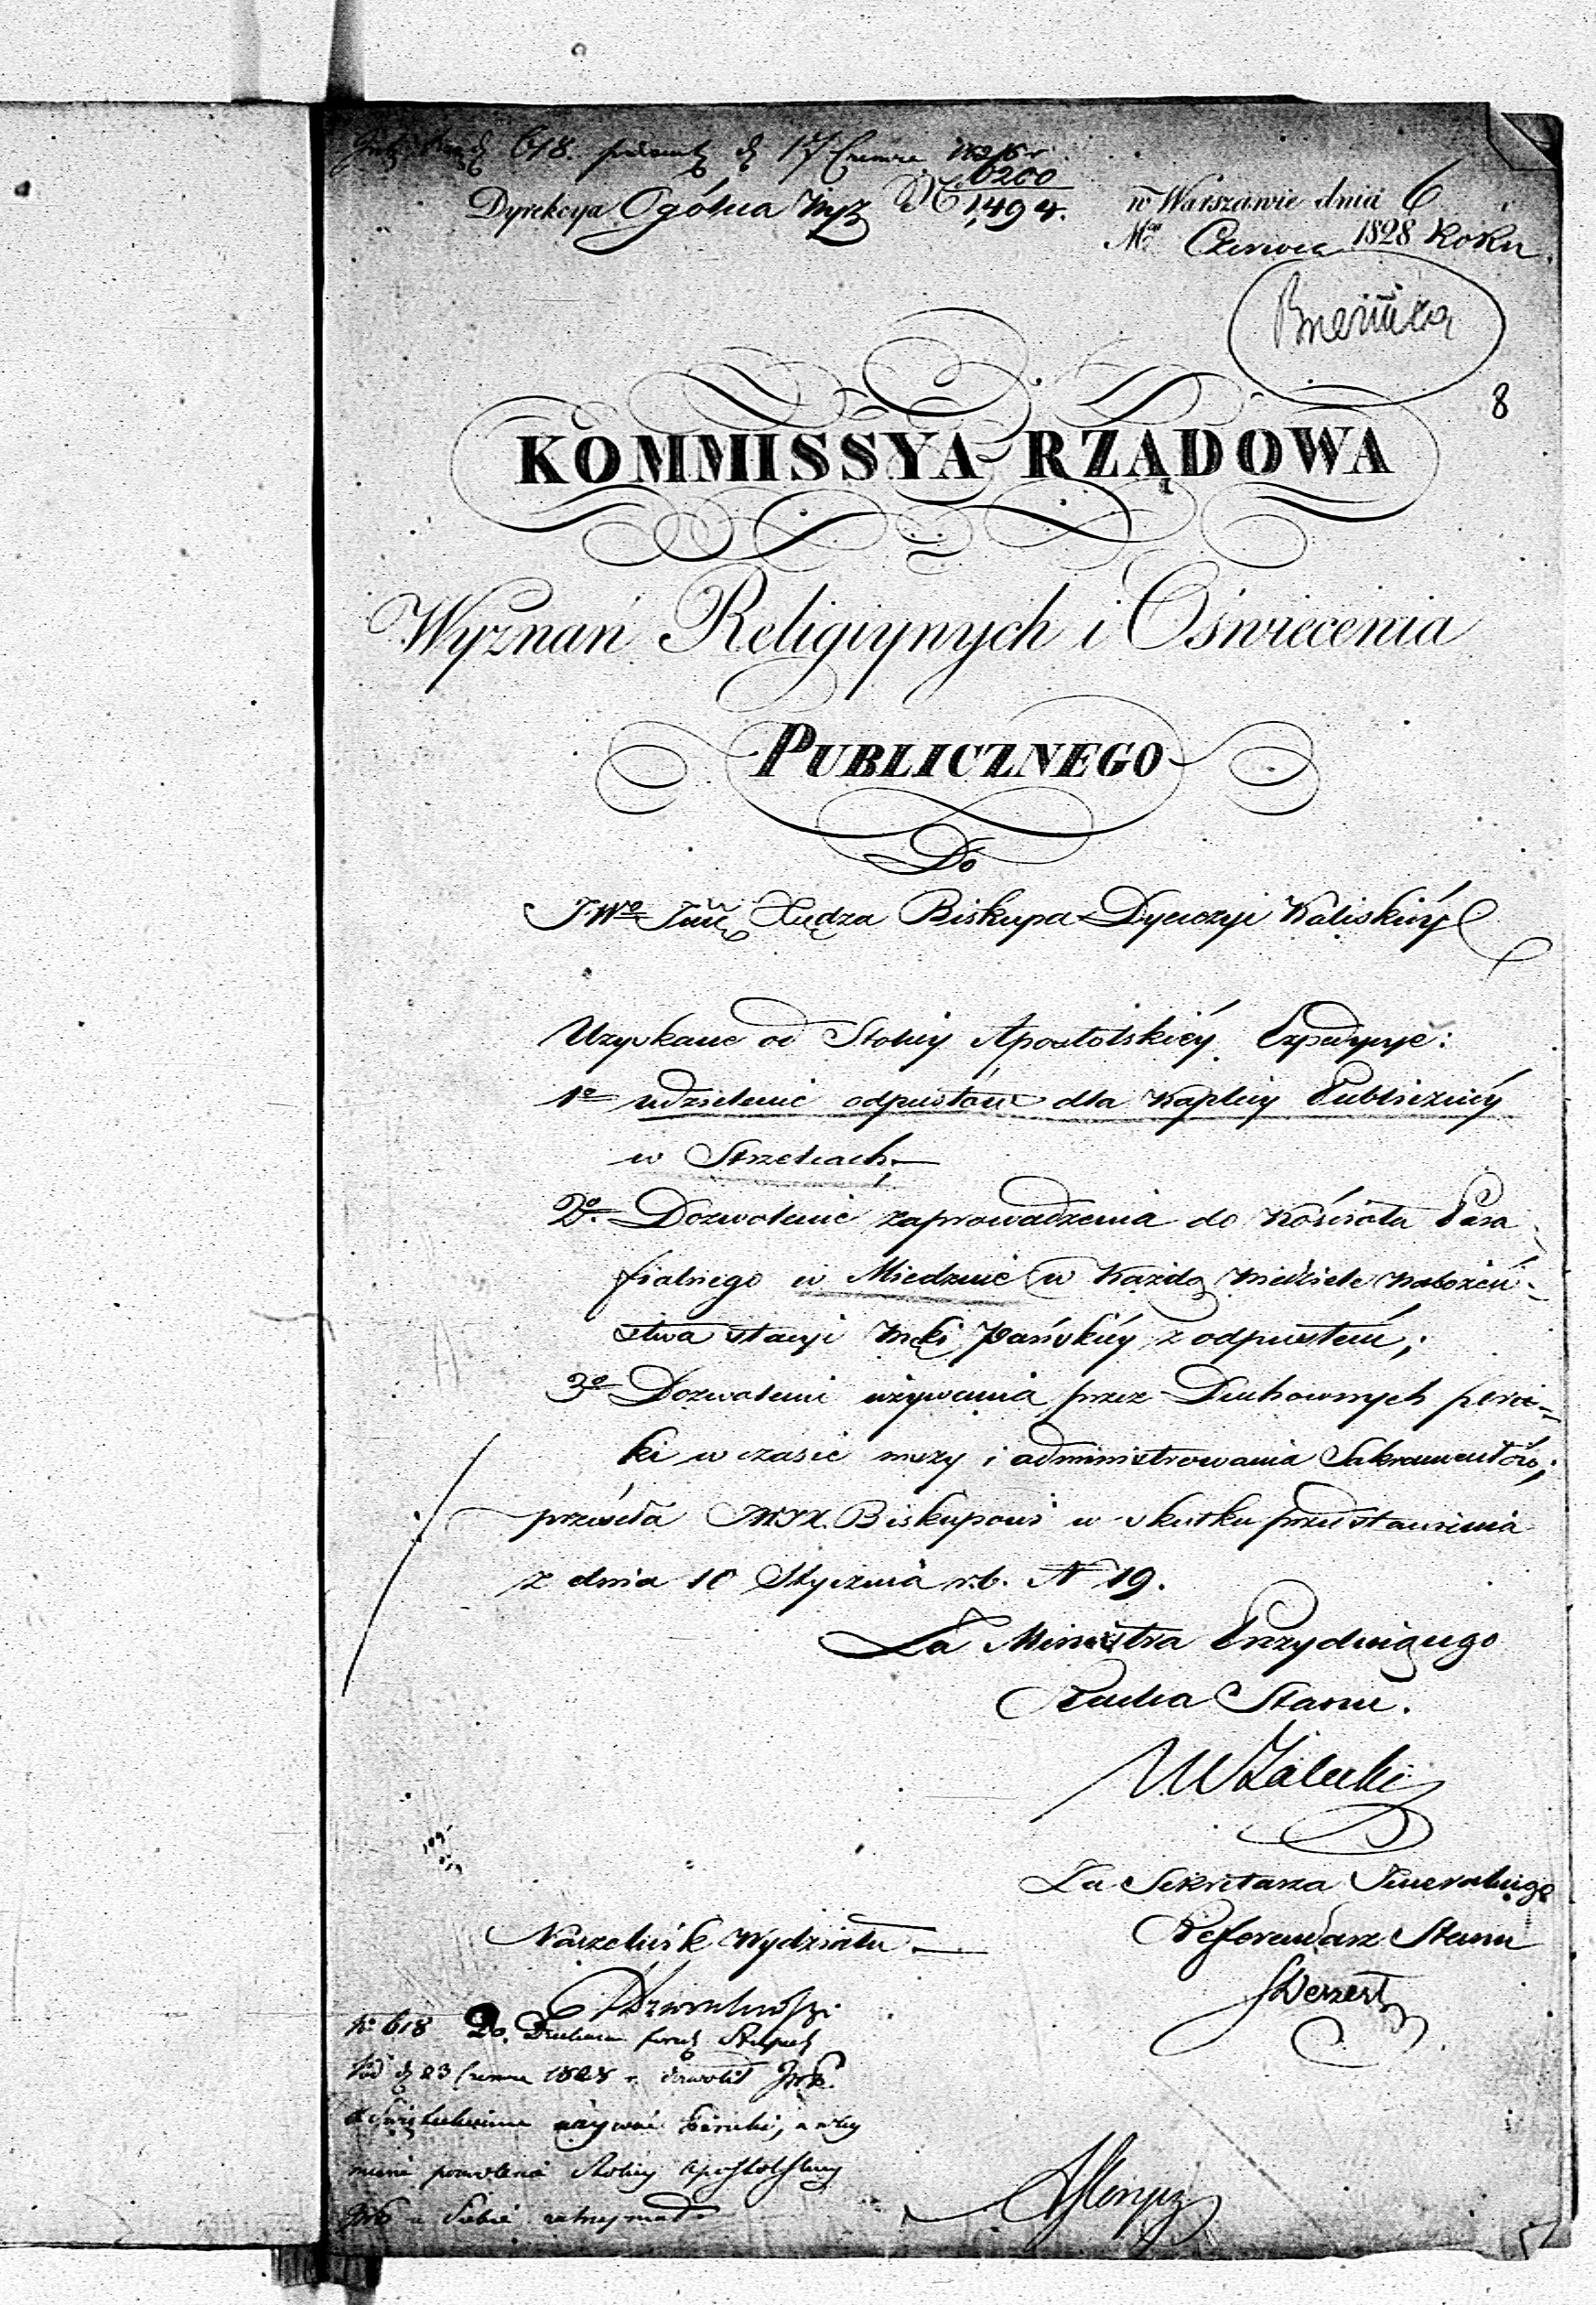 618. d 17 Czerwca 1828 r
6200
Dyrekcya Ogólna Wyz № 1494. w Warszawie dnia 6
Mca Czerwca 1828 Roku.
8
KOMMISSYA RZĄDOWA
Wyznań Religiynych i Oświecenia
PUBLICZNEGO
Do
JWo Xiędza Biskupa Dyecezyi Kaliskiéy
Uzyskane od Stolicy Apostolskiéy Expedycye:
1o udzielenie odpustów dla Kaplicy Publicznéy
w Strzelcach;
2o Dozwolenie zaprowadzenia do Kościoła Para
fialnego w Miedznie w każdą Niedzielę nabożeń-
stwa stacyi Męki Pańskiéy z odpustem;
3o Dozwolenie używania przez Duchownych peru-
ki w czasie mszy i administrowania Sakramentów;
przesyła Biskupowi w skutku przedstawienia
z dnia 10 Stycznia r.b. N 19.
Za Ministra Prezyduiącego
Radca Stanu.
Zalecki
Za Sekretarza Generalnego
Referendarz Stanu
Naczelnik Wydziału
No 618 Do.
d 23 Czerwca 1828 r. dozwolił
używać Peruki, a
pozwolenie Stolicy Apostolskiey
u Siebie zatrzymał